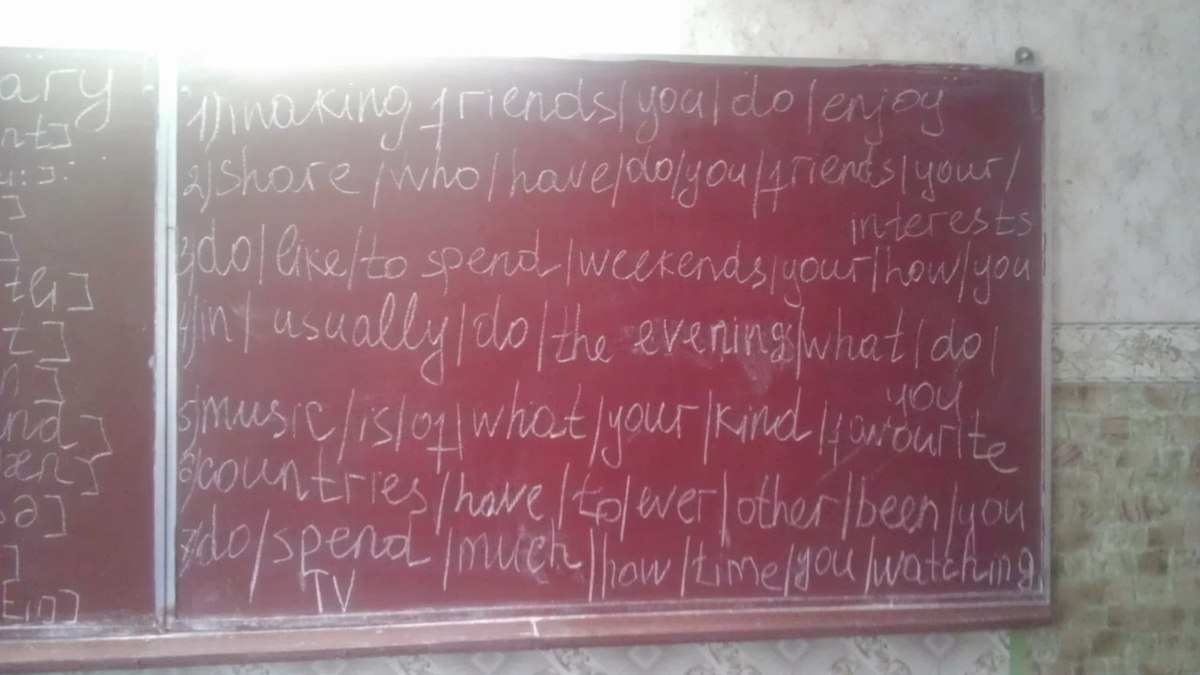 ary
nt]
u:]
]
]
t]
]
nd]
æn]
sə]
]
EIn]
1) making friends/you/do/enjoy
2) share/who/have/do/you/friends/your/
interests
3) do/like/to spend/weekends/your/how/you
4) in/usually/do/the evening/what/do/
you
5) music/is/of/what/your/kind/favourite
6) countries/have/to/ever/other/been/you
7) do/spend/much/how/time/you/watching
TV